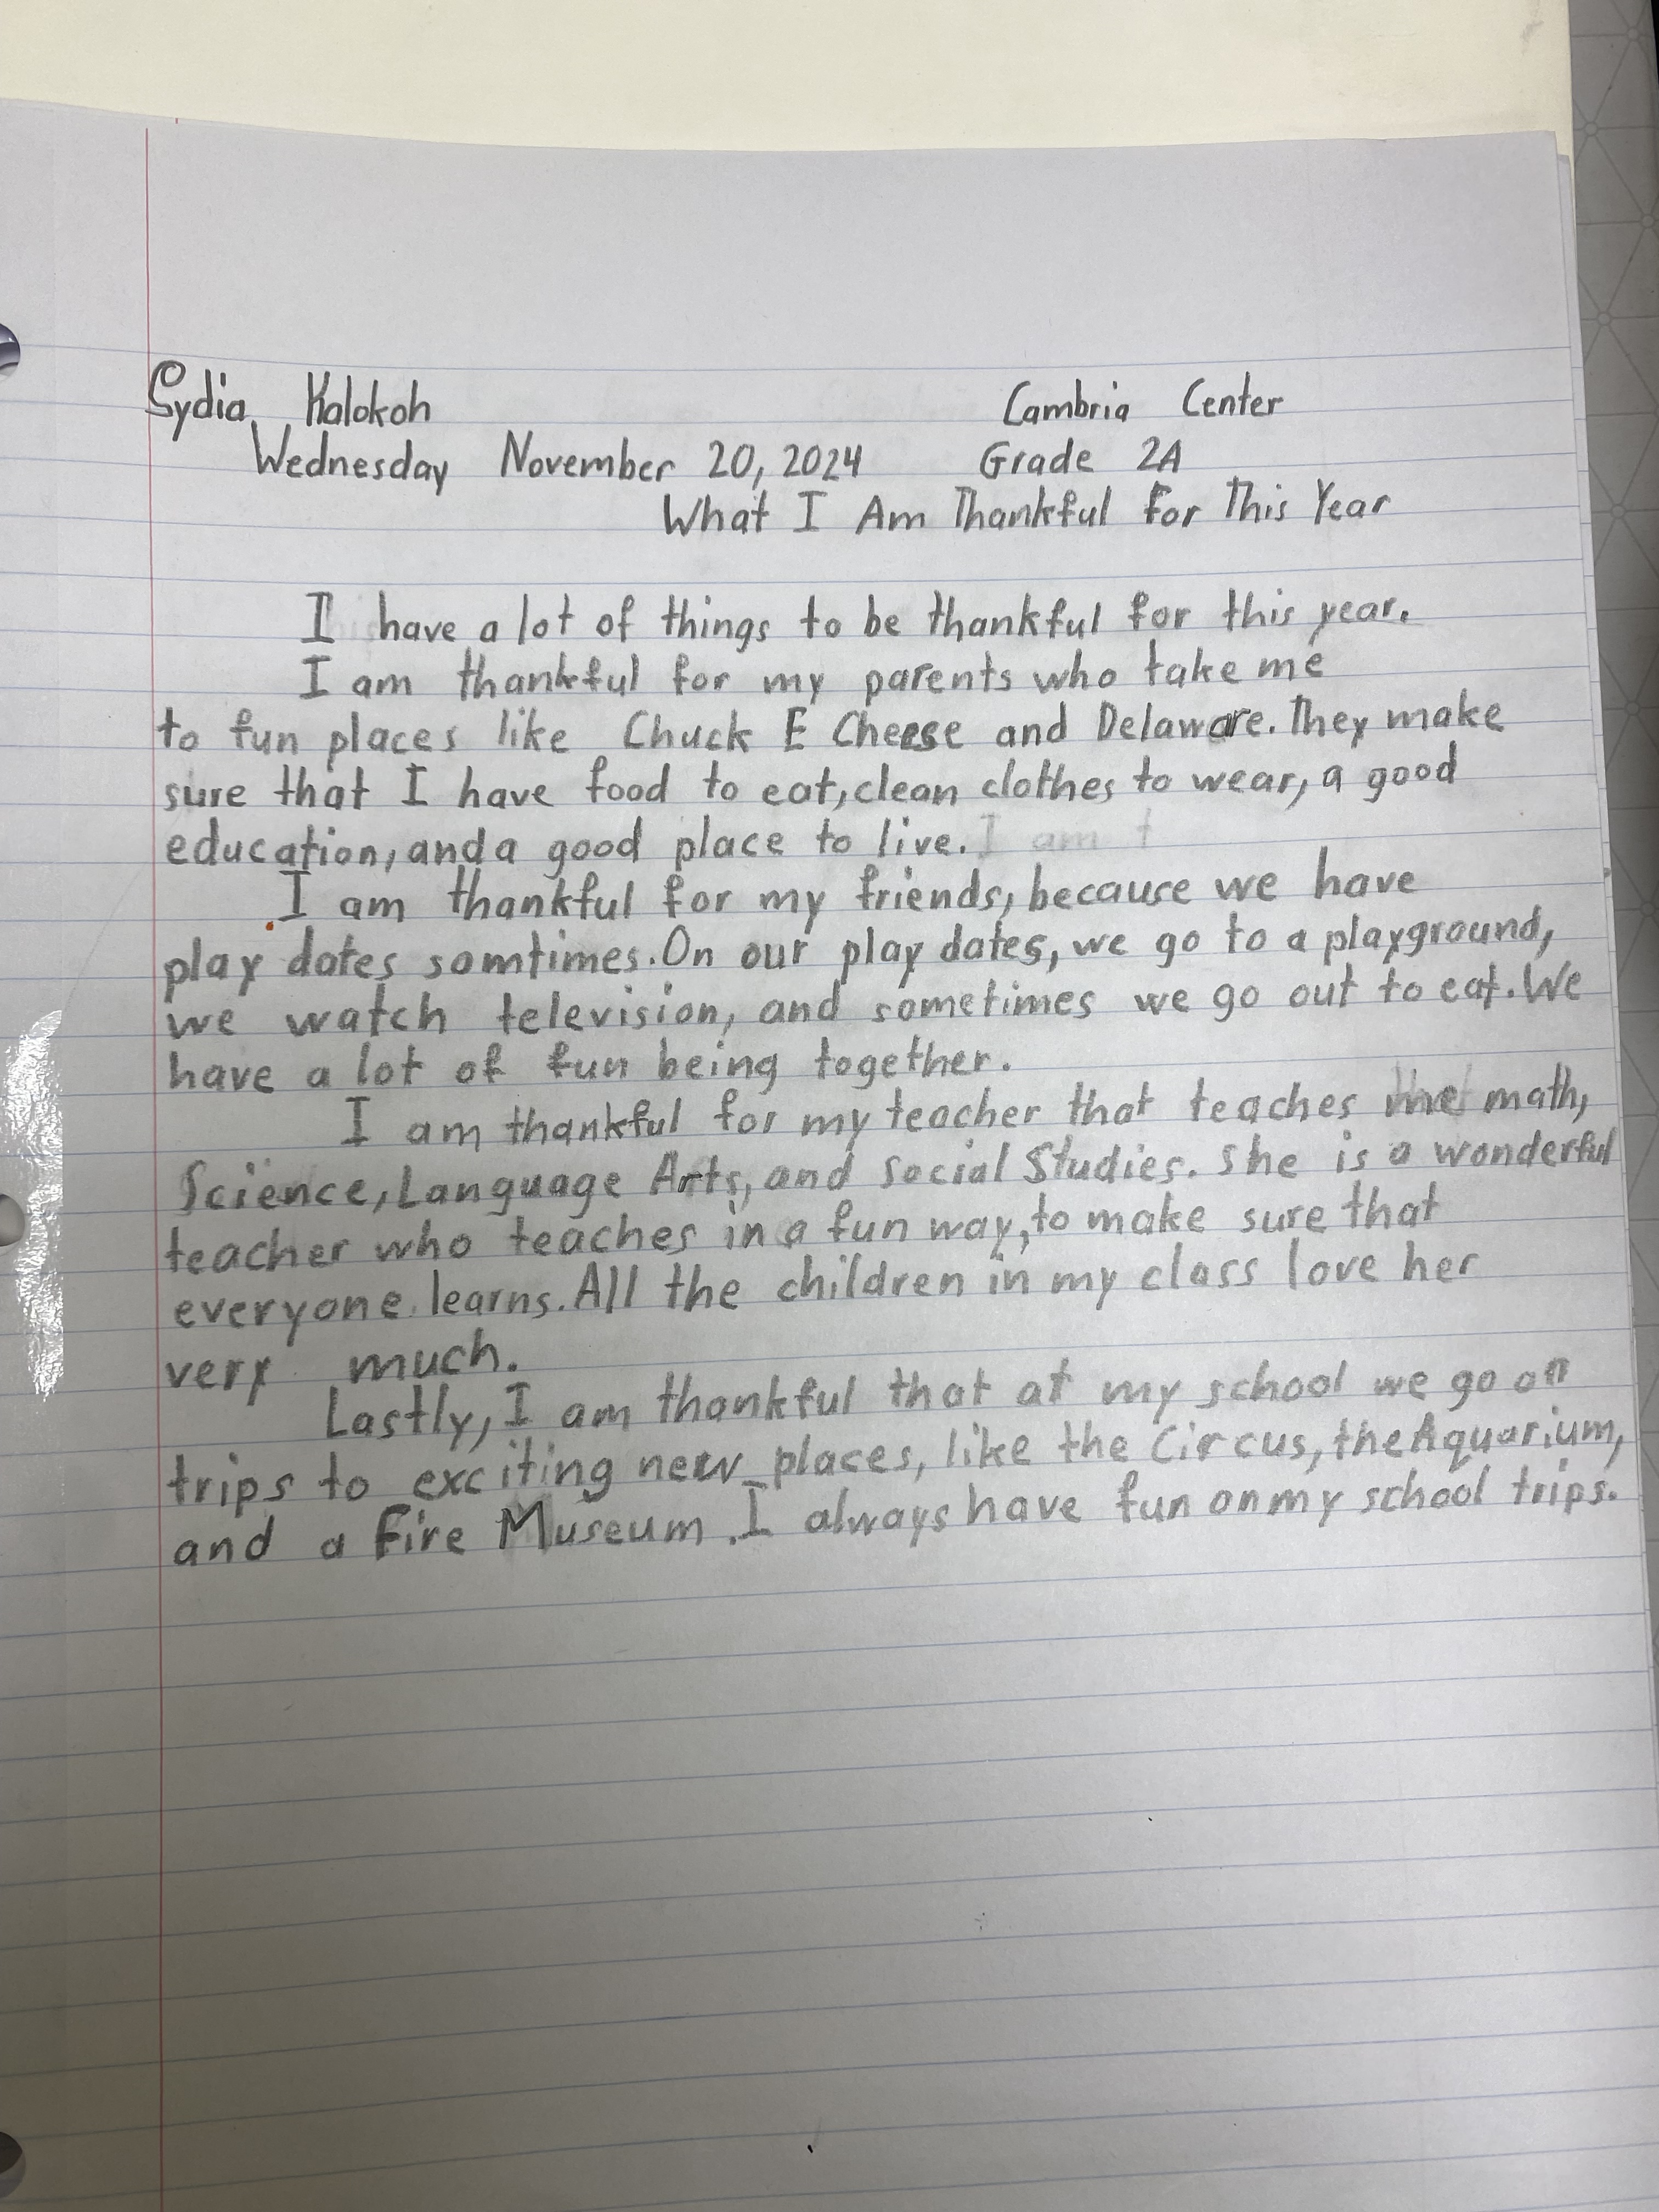 Sydia Kalokoh Cambria Center
Wednesday November 20, 2024 Grade 2A
What I Am Thankful For This Year
I have a lot of things to be thankful for this year.
I am thankful for my parents who take me
to fun places like Chuck E Cheese and Delaware. They make
sure that I have food to eat, clean clothes to wear, a good
education, and a good place to live. I am t
I am thankful for my friends, because we have
play dates somtimes. On our play dates, we go to a playground,
we watch television, and sometimes we go out to eat. We
have a lot of fun being together.
I am thankful for my teacher that teaches me math,
Science, Language Arts, and Social Studies. She is a wonderful
teacher who teaches in a fun way, to make sure that
everyone learns. All the children in my class love her
very much.
Lastly, I am thankful that at my school we go on
trips to exciting new places, like the Circus, the Aquarium,
and a Fire Museum. I always have fun on my school trips.